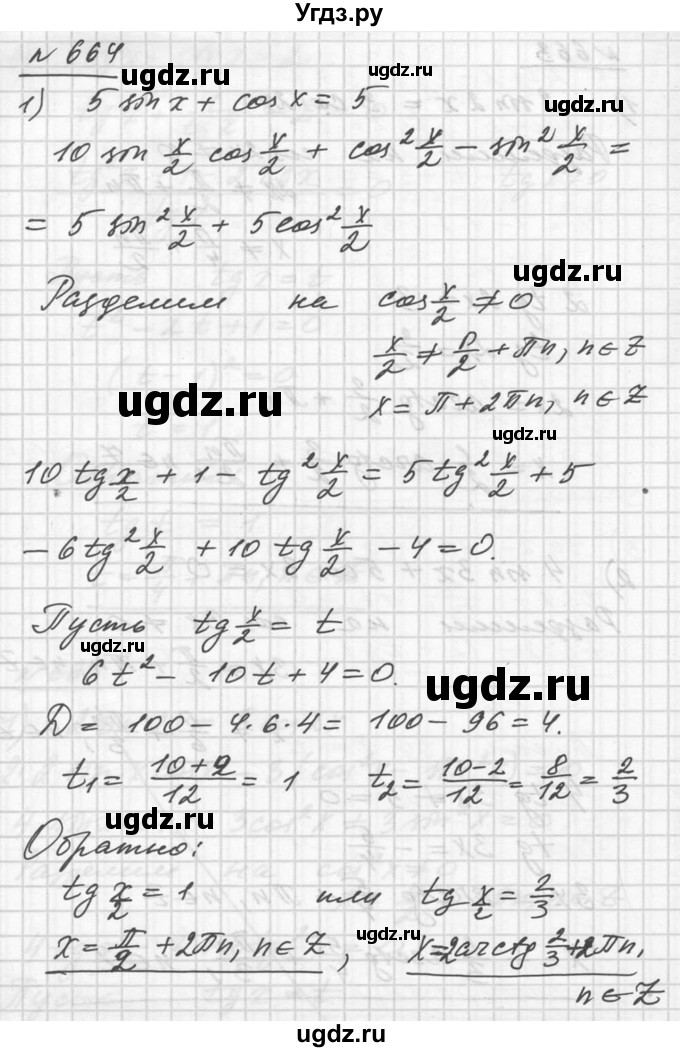 Угдз.ру
№ 664
ugdz.ru
1) 5 sin x + cos x = 5
ugdz.ru
10 sin x/2 cos x/2 + cos² x/2 − sin² x/2 =
= 5 sin² x/2 + 5 cos² x/2
ugdz.ru
Разделим на cos x/2 ≠ 0
x/2 ≠ π/2 + πn, n ∈ Z
ugdz.ru
x = π + 2πn, n ∈ Z
10 tg x/2 + 1 − tg² x/2 = 5 tg² x/2 + 5
− 6 tg² x/2 + 10 tg x/2 − 4 = 0.
Пусть tg x/2 = t
6t² − 10t + 4 = 0.
ugdz.ru
D = 100 − 4·6·4 = 100 − 96 = 4.
t₁ = (10+2)/12 = 1 t₂ = (10−2)/12 = 8/12 = 2/3
ugdz.ru
Обратно:
tg x/2 = 1 или tg x/2 = 2/3
ugdz.ru
x = π/2 + 2πn, n ∈ Z, x = 2arctg 2/3 + 2πn,
n ∈ Z
ugdz.ru